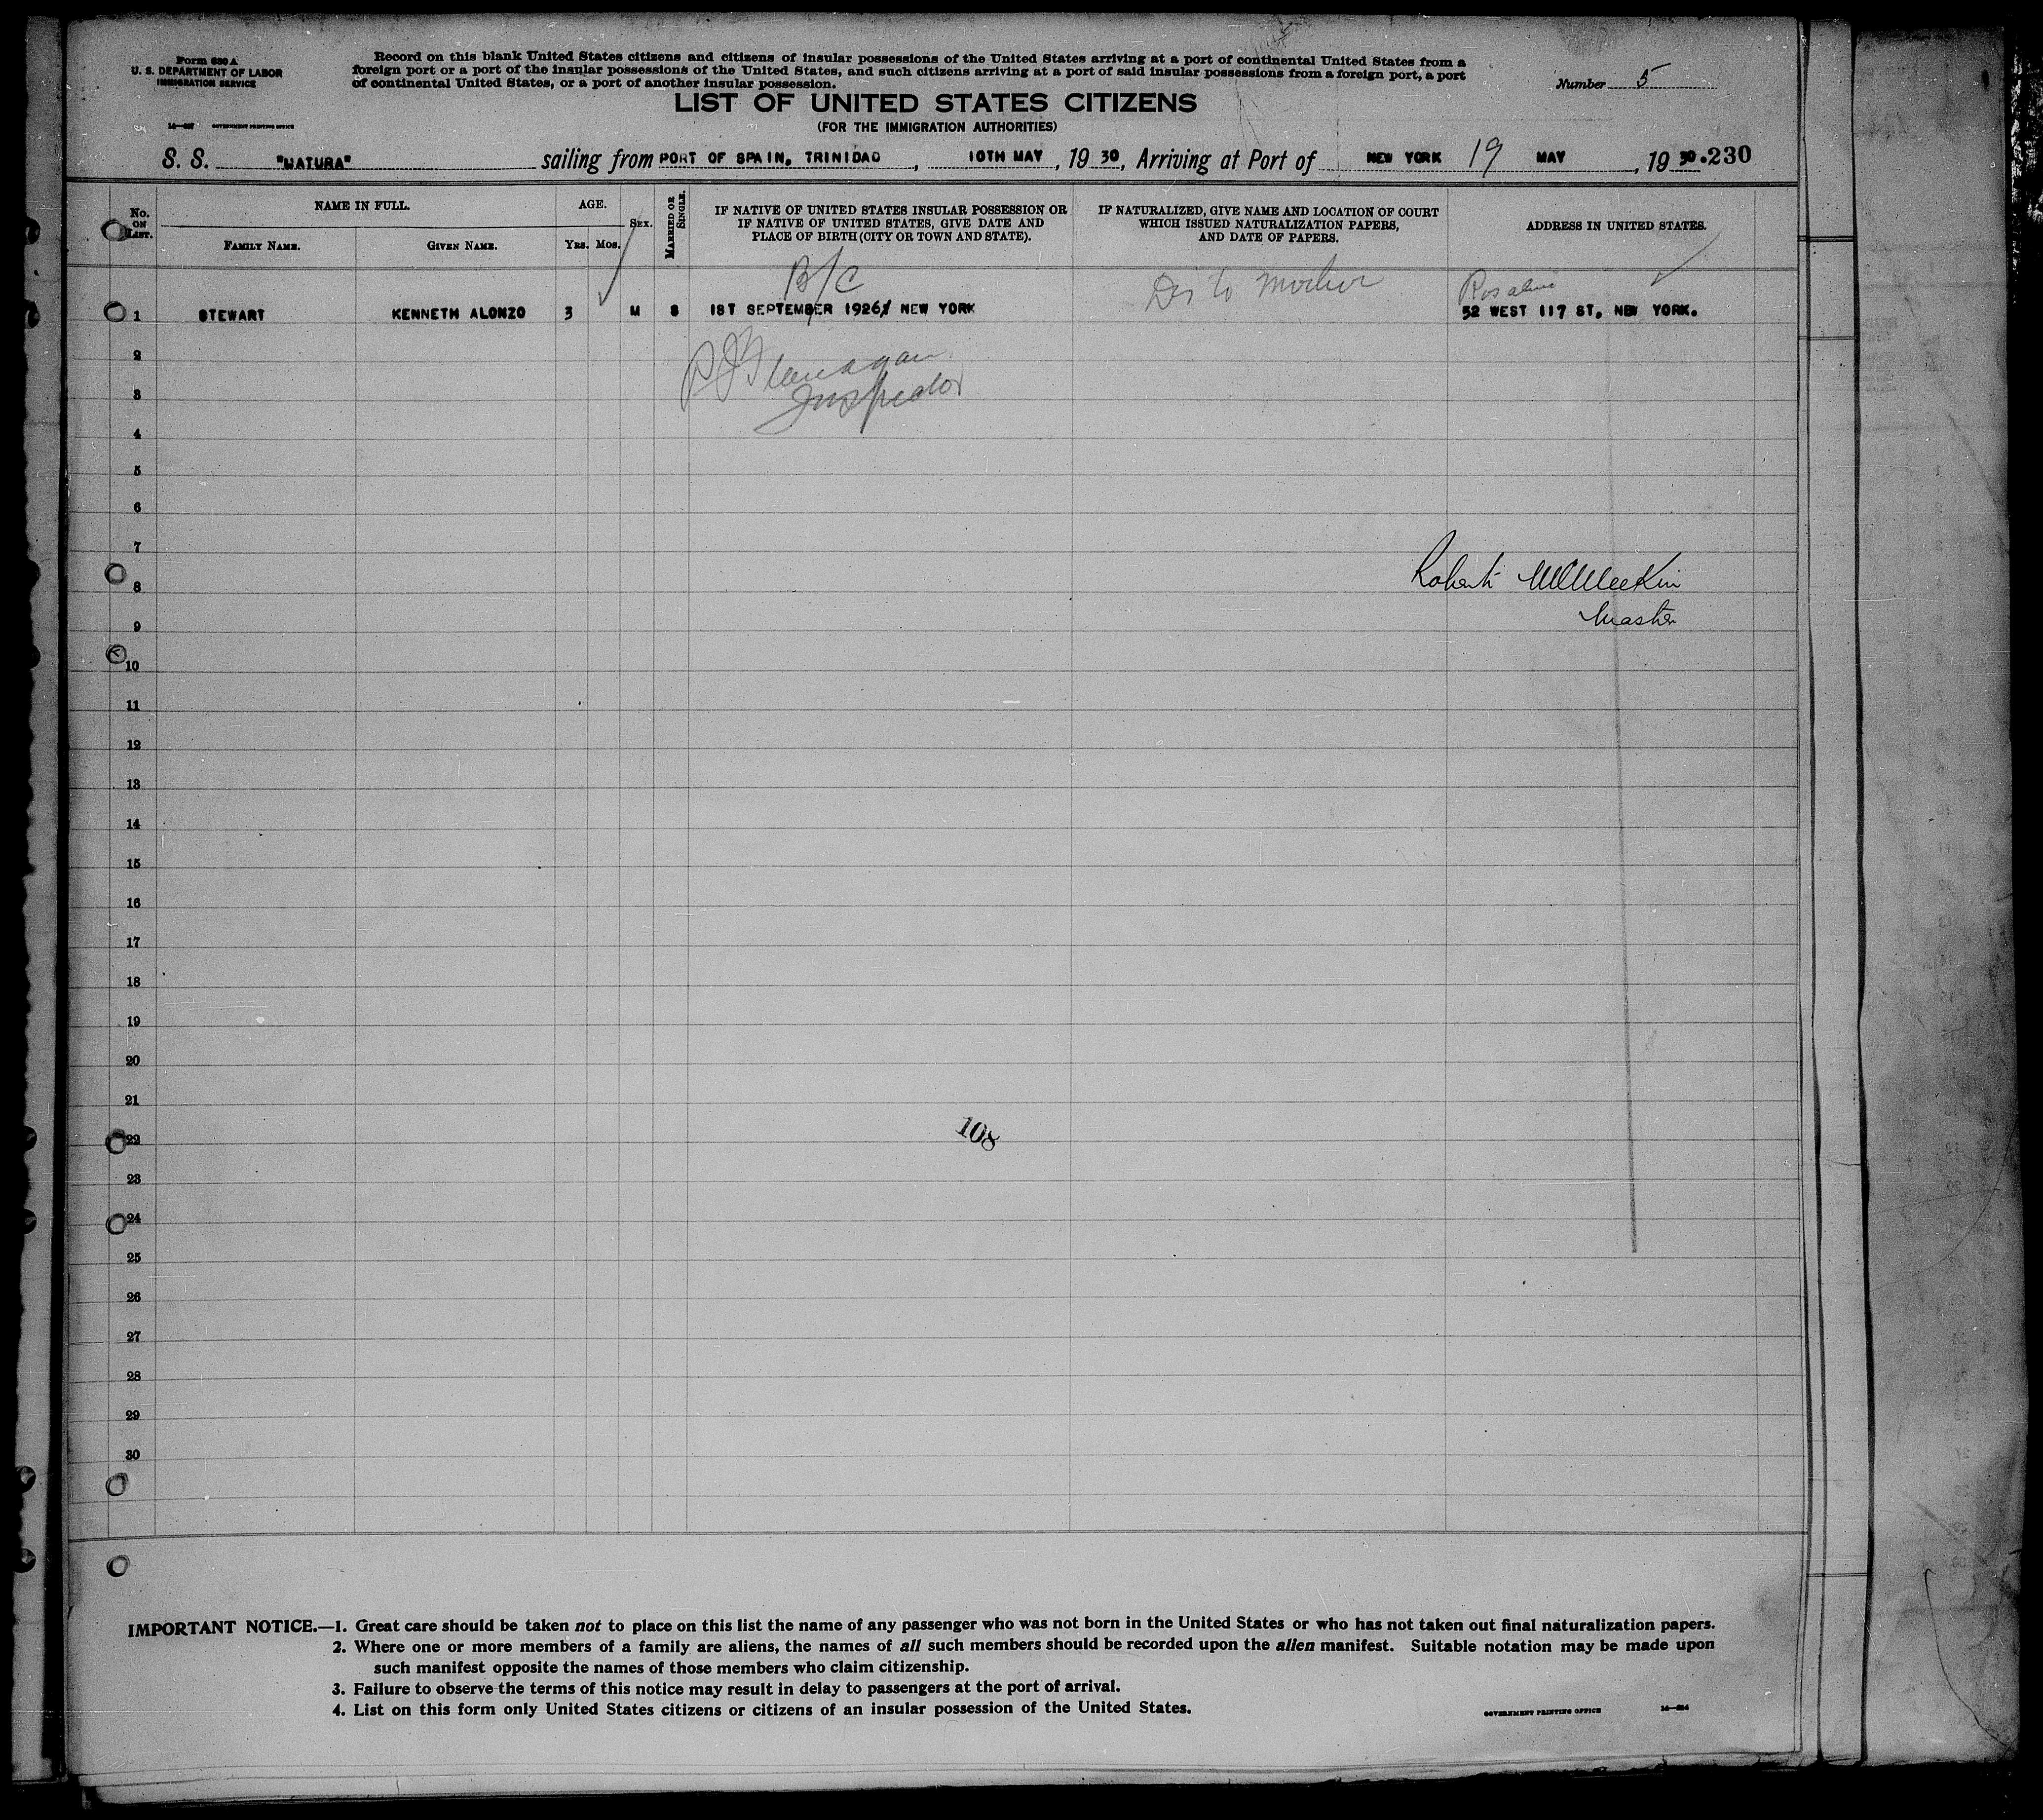 Form 630 A
U. S. DEPARTMENT OF LABOR
IMMIGRATION SERVICE
Record on this blank United States citizens and citizens of insular possessions of the United States arriving at a port of continental United States from a
foreign port or a port of the insular possessions of the United States, and such citizens arriving at a port of said insular possessions from a foreign port, a port
of continental United States, or a port of another insular possession.
Number 5
LIST OF UNITED STATES CITIZENS
(FOR THE IMMIGRATION AUTHORITIES)
GOVERNMENT PRINTING OFFICE
S. S. "MATURA" sailing from PORT OF SPAIN, TRINIDAD, 10TH MAY, 1930, Arriving at Port of NEW YORK 19 MAY, 1930.230
No. ON LIST.
NAME IN FULL.
FAMILY NAME.
GIVEN NAME.
AGE.
YRS. MOS.
SEX.
MARRIED OR SINGLE.
IF NATIVE OF UNITED STATES INSULAR POSSESSION OR
IF NATIVE OF UNITED STATES, GIVE DATE AND
PLACE OF BIRTH (CITY OR TOWN AND STATE).
IF NATURALIZED, GIVE NAME AND LOCATION OF COURT
WHICH ISSUED NATURALIZATION PAPERS,
AND DATE OF PAPERS.
ADDRESS IN UNITED STATES.
B/C
to mother
Rosaline
1 STEWART KENNETH ALONZO 3 M S 1ST SEPTEMBER 1926, NEW YORK 52 WEST 117 ST, NEW YORK.
2
P J Flanagan
3
Inspector
4
5
6
7
8 Robert McMeekin
9 Master
10
11
12
13
14
15
16
17
18
19
20
21
108
22
23
24
25
26
27
28
29
30
IMPORTANT NOTICE.—1. Great care should be taken not to place on this list the name of any passenger who was not born in the United States or who has not taken out final naturalization papers.
2. Where one or more members of a family are aliens, the names of all such members should be recorded upon the alien manifest. Suitable notation may be made upon
such manifest opposite the names of those members who claim citizenship.
3. Failure to observe the terms of this notice may result in delay to passengers at the port of arrival.
4. List on this form only United States citizens or citizens of an insular possession of the United States.
GOVERNMENT PRINTING OFFICE